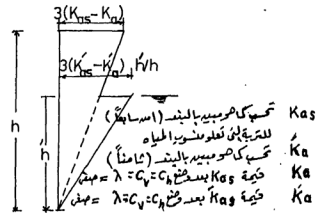 3(Kas-Ka)
3(Ḱas-Ḱa) h́/h
h
h́
Kas تحسب كما هو مبين بالبند (امد سابعاً)
للتربة التى تعلو منسوب المياه
Ḱa تحسب كما هو مبين بالبند (ثامناً)
Ka قيمة Kas بعد وضع λ = Cv = Ch = صفر
Ḱa قيمة Ḱas بعد وضع λ = Cv = Ch = صفر